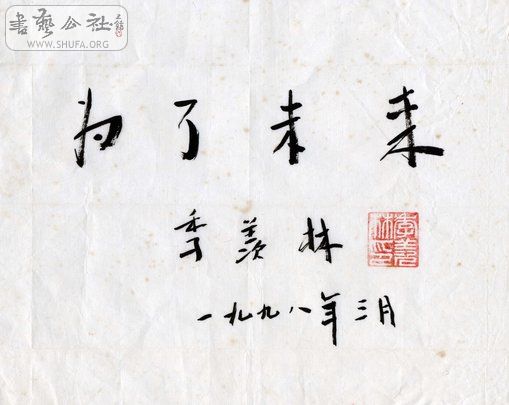 書藝公社
WWW.SHUFA.ORG
为了未来
季羡林
一九九八年三月